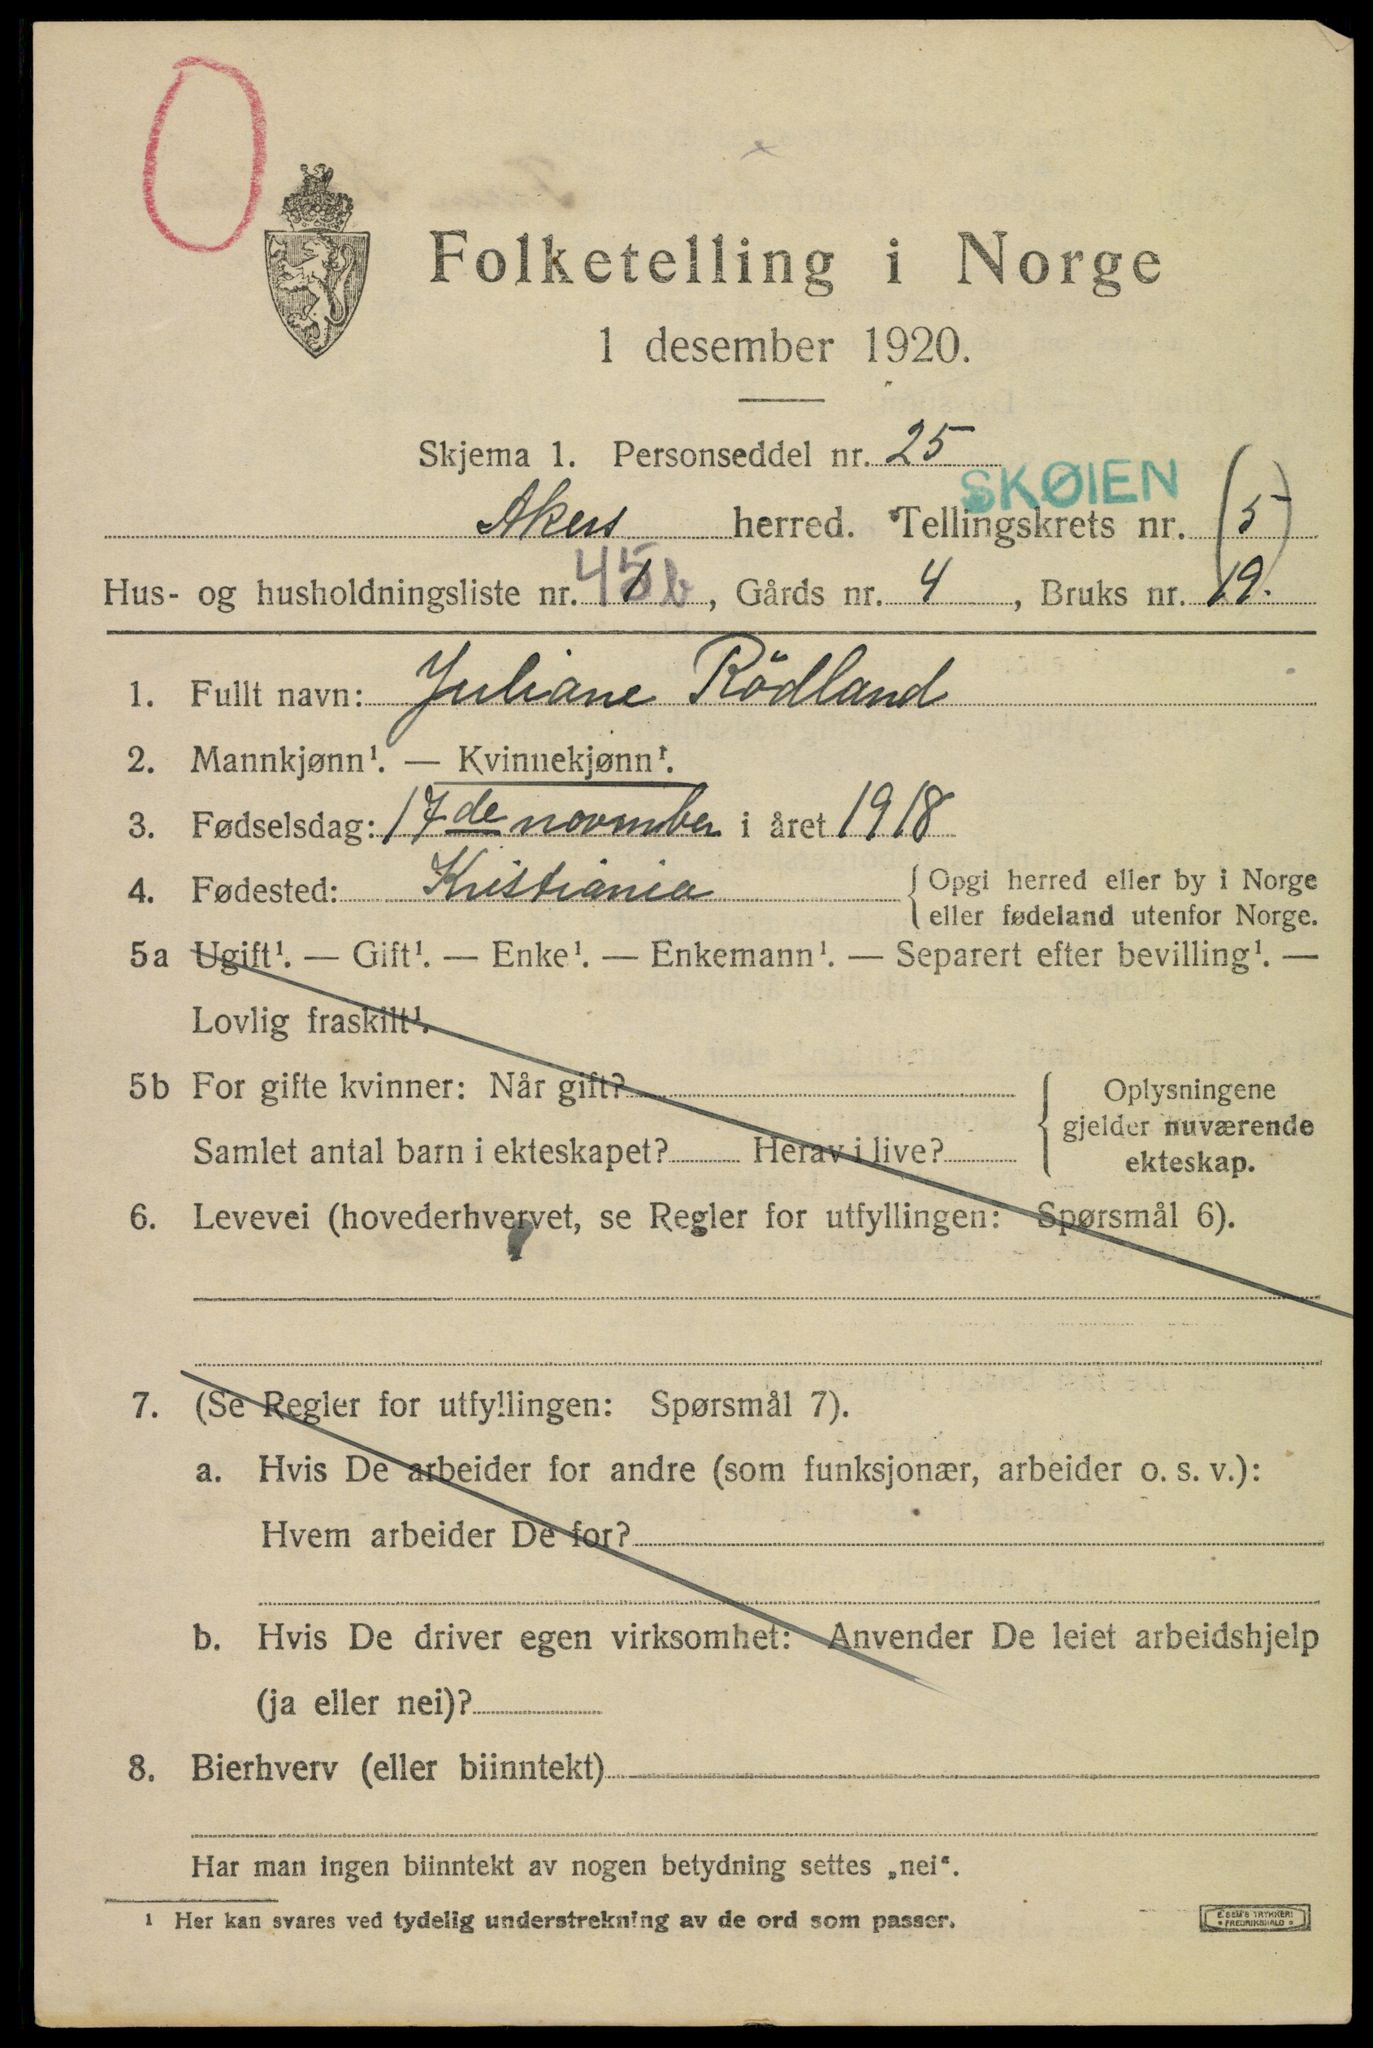 Folketelling i Norge
1 desember 1920.
Skjema 1. Personseddel nr. 25
SKØIEN
Akers herred. Tellingskrets nr. (5)
Hus- og husholdningsliste nr. 1 45b, Gårds nr. 4, Bruks nr. 19.
1. Fullt navn: Juliane Rödland
2. Mannkjønn¹. — Kvinnekjønn¹.
3. Fødselsdag: 17de november i året 1918
4. Fødested: Kristiania { Opgi herred eller by i Norge
eller fødeland utenfor Norge.
5a Ugift¹. — Gift¹. — Enke¹. — Enkemann¹. — Separert efter bevilling¹. —
Lovlig fraskilt¹.
5b For gifte kvinner: Når gift?
Samlet antal barn i ekteskapet? Herav i live?
{ Oplysningene
gjelder nuværende
ekteskap.
6. Levevei (hovederhvervet, se Regler for utfyllingen: Spørsmål 6).
7. (Se Regler for utfyllingen: Spørsmål 7).
a. Hvis De arbeider for andre (som funksjonær, arbeider o. s. v.):
Hvem arbeider De for?
b. Hvis De driver egen virksomhet: Anvender De leiet arbeidshjelp
(ja eller nei)?
8. Bierhverv (eller biinntekt)
Har man ingen biinntekt av nogen betydning settes „nei“.
¹ Her kan svares ved tydelig understrekning av de ord som passer.
E. SEM'S TRYKKERI
• FREDRIKSHALD •